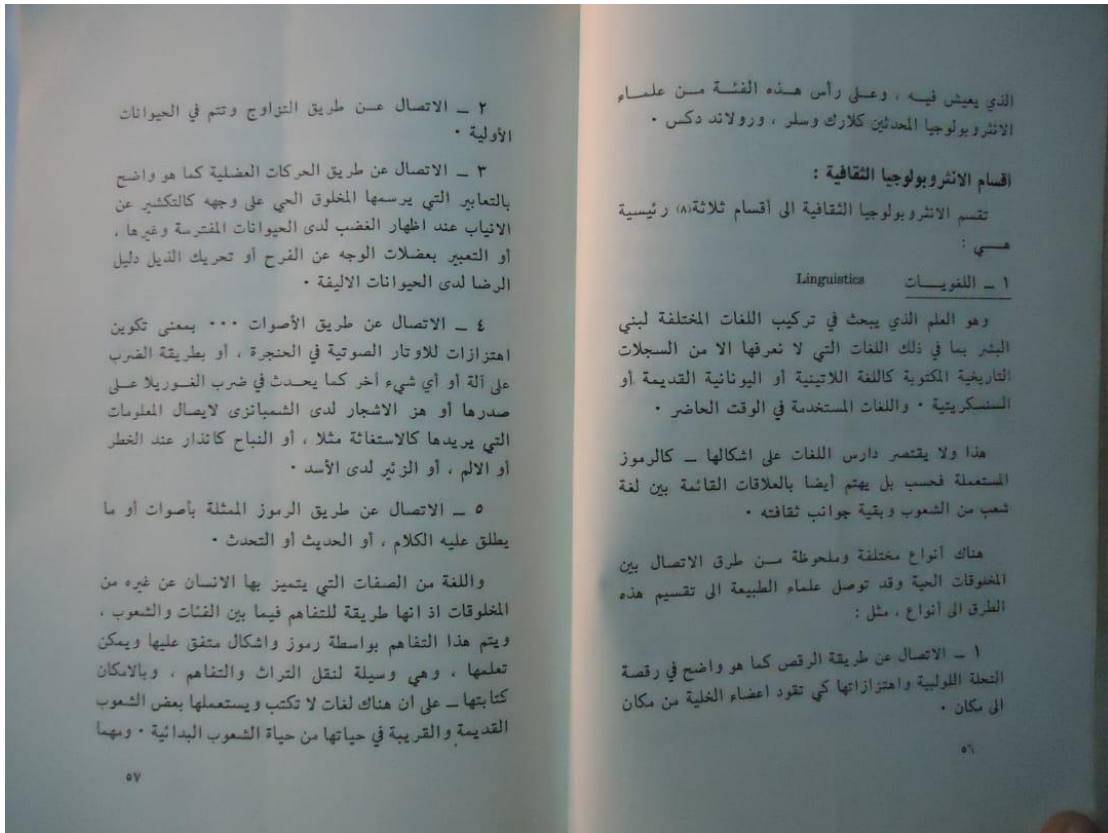 الذي يعيش فيه ، وعلى رأس هــذه الفئــة مــن علمــاء
الانثروبولوجيا المحدثين كلارك وسلر ، ورولاند دكس ٠
اقسام الانثروبولوجيا الثقافية :
تقسم الانثروبولوجيا الثقافية الى أقسام ثلاثة(٨) رئيسية
هــي :
١ ــ اللغويــات Linguistics
وهو العلم الذي يبحث في تركيب اللغات المختلفة لبني
البشر بما في ذلك اللغات التي لا نعرفها الا من السجلات
التاريخية المكتوبة كاللغة اللاتينية أو اليونانية القديمة أو
السنسكريتية ٠ واللغات المستخدمة في الوقت الحاضر ٠
هذا ولا يقتصر دارس اللغات على اشكالها ــ كالرموز
المستعملة فحسب بل يهتم أيضا بالعلاقات القائمة بين لغة
شعب من الشعوب وبقية جوانب ثقافته ٠
هناك أنواع مختلفة وملحوظة مــن طرق الاتصال بين
المخلوقات الحية وقد توصل علماء الطبيعة الى تقسيم هذه
الطرق الى أنواع ، مثل :
١ ــ الاتصال عن طريقة الرقص كما هو واضح في رقصة
النحلة اللولبية واهتزازاتها كي تقود اعضاء الخلية من مكان
الى مكان ٠
٥٦
٢ ــ الاتصال عــن طريق التزاوج وتتم في الحيوانات
الأولية ٠
٣ ــ الاتصال عن طريق الحركات العضلية كما هو واضح
بالتعابير التي يرسمها المخلوق الحي على وجهه كالتكشير عن
الانياب عند اظهار الغضب لدى الحيوانات المفترسة وغيرها ،
أو التعبير بعضلات الوجه عن الفرح أو تحريك الذيل دليل
الرضا لدى الحيوانات الاليفة ٠
٤ ــ الاتصال عن طريق الأصوات ٠٠٠ بمعنى تكوين
اهتزازات للاوتار الصوتية في الحنجرة ، أو بطريقة الضرب
على آلة أو أي شيء أخر كما يحــدث في ضرب الغــوريلا علــى
صدرها أو هز الاشجار لدى الشمبانزى لايصال المعلومات
التي يريدها كالاستغاثة مثلا ، أو النباح كانذار عند الخطر
أو الالم ، أو الزئير لدى الأسد ٠
٥ ــ الاتصال عن طريق الرموز الممثلة بأصوات أو ما
يطلق عليه الكلام ، أو الحديث أو التحدث ٠
واللغة من الصفات التي يتميز بها الانسان عن غيره من
المخلوقات اذ انها طريقة للتفاهم فيما بين الفئات والشعوب ،
ويتم هذا التفاهم بواسطة رموز واشكال متفق عليها ويمكن
تعلمها ، وهي وسيلة لنقل التراث والتفاهم ، وبالامكان
كتابتها ــ على ان هناك لغات لا تكتب ويستعملها بعض الشعوب
القديمة والقريبة في حياتها من حياة الشعوب البدائية ٠ ومهما
٥٧